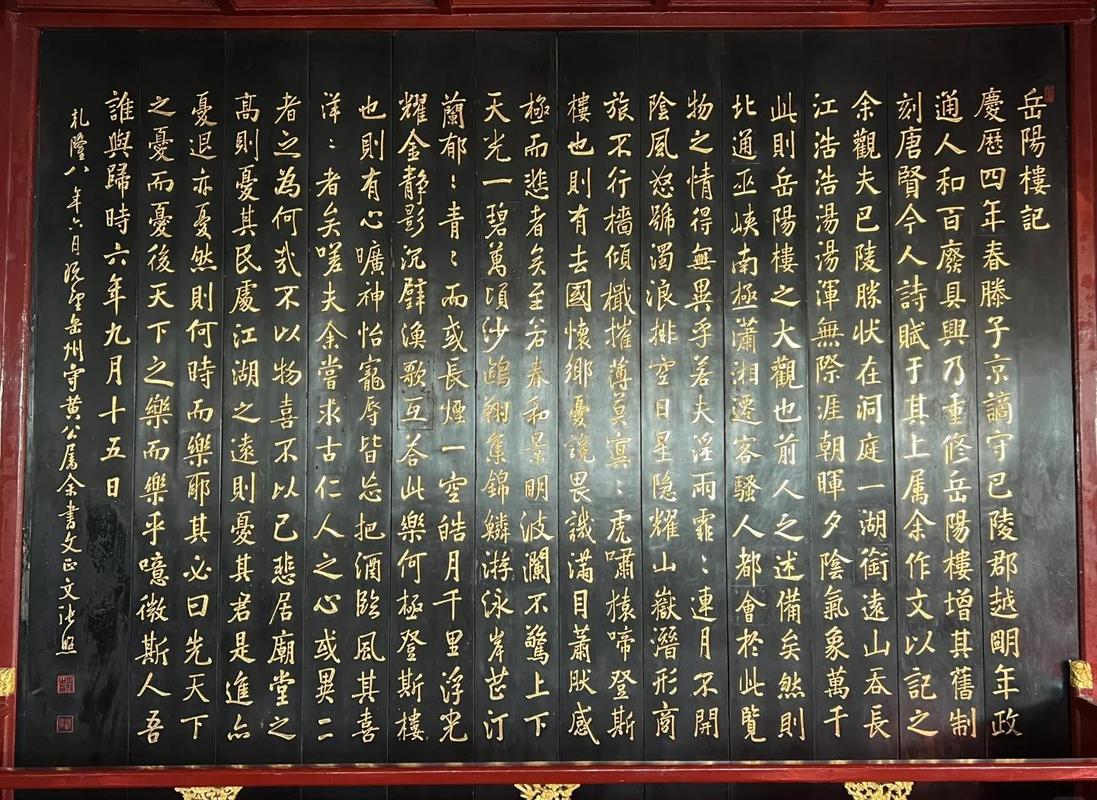 岳陽樓記
慶歷四年春滕子京謫守巴陵郡越明年政
通人和百廢具興乃重修岳陽樓增其舊制
刻唐賢今人詩賦于其上属余作文以記之
余觀夫巴陵勝状在洞庭一湖銜遠山吞長
江浩浩湯湯渾無際涯朝暉夕陰氣象萬千
此則岳陽樓之大觀也前人之述備矣然則
北通巫峽南極瀟湘遷客騷人都會於此覽
物之情得無異乎若夫淫雨霏〻連月不開
陰風怒號濁浪排空日星隐耀山嶽潛形商
旅不行檣傾檝摧薄莫冥〻虎嘯猿啼登斯
樓也則有去國懷鄉憂讒畏譏滿目蕭肰感
極而悲者矣至若春和景明波瀾不驚上下
天光一碧萬頃沙鷗翔集錦鱗游泳岸芷汀
蘭郁〻青〻而或長煙一空皓月千里浮光
耀金靜影沉璧漁歌互答此樂何極登斯樓
也則有心曠神怡寵辱皆忘把酒臨風其喜
洋〻者矣嗟夫余嘗求古仁人之心或異二
者之為何哉不以物喜不以己悲居廟堂之
高則憂其民處江湖之遠則憂其君是進亦
憂退亦憂然則何時而樂耶其必曰先天下
之憂而憂後天下之樂而樂乎噫微斯人吾
誰與歸時六年九月十五日
乾隆八年六月既望岳州守黄公屬余書文正文張照